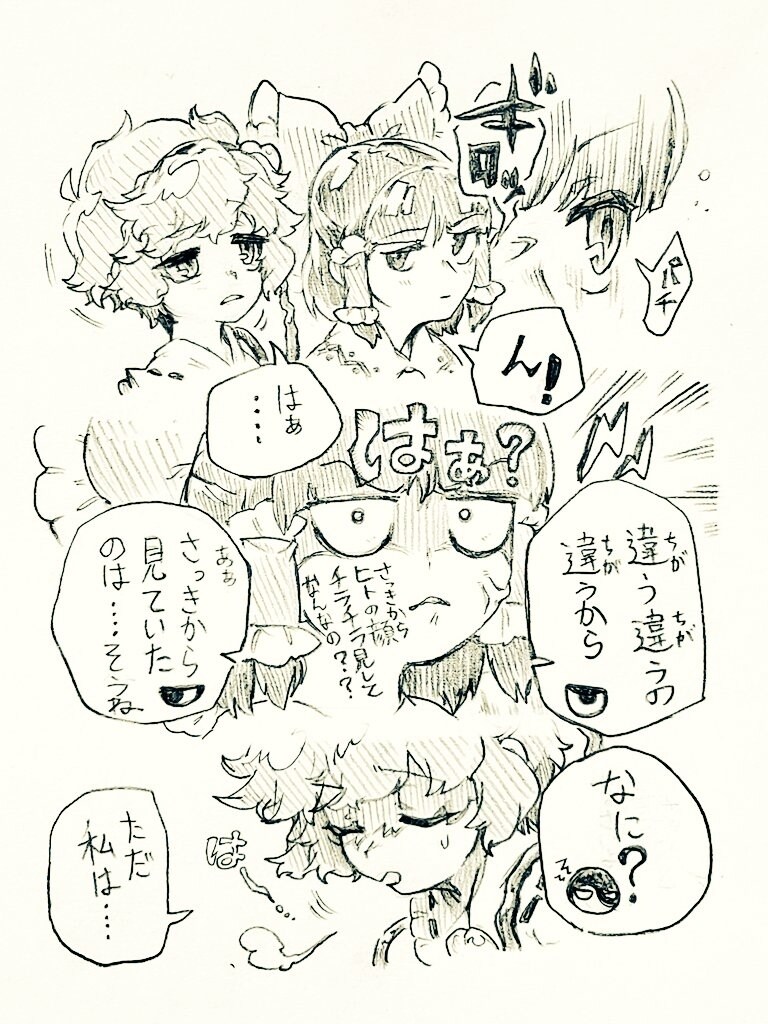 ギロッ
パチ
ん!
はぁ
‥‥
はぁ?
さっきから
ヒトの顔
チラチラ見して
なんなの??
違う違うの
違うから
あぁ
さっきから
見ていた
のは‥‥そうね
なに?
は
ただ
私は‥‥